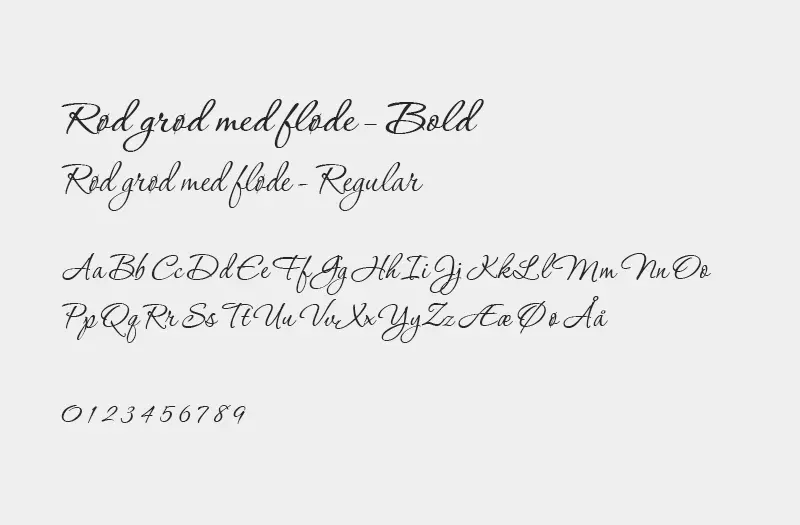 Rød grød med fløde - Bold
Rød grød med fløde - Regular
Aa Bb Cc Dd Ee Ff Gg Hh Ii Jj Kk Ll Mm Nn Oo
Pp Qq Rr Ss Tt Uu Vv Xx Yy Zz Ææ Øø Åå
0 1 2 3 4 5 6 7 8 9